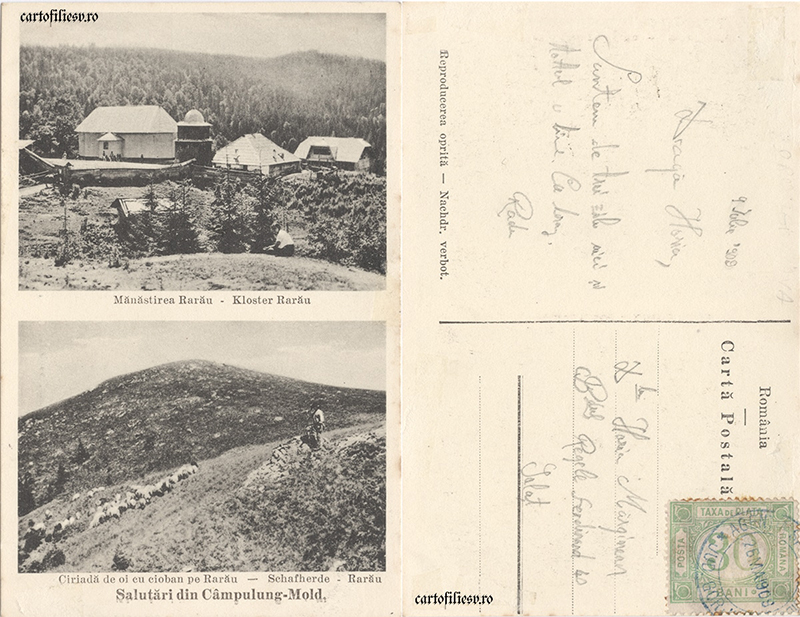 cartofiliesv.ro
Mănăstirea Rarău - Kloster Rarău
Ciriadă de oi cu cioban pe Rarău — Schafherde - Rarău
Salutări din Câmpulung-Mold.
Reproducerea oprită — Nachdr. verbot.
Dragă Horia,
Suntem de trei zile aici și
Radu
România
Cartă Postală
Horia Mărginean
Bdul Regele Ferdinand 40
TAXA DE PLATA
POSTA
ROMANA
BANI
cartofiliesv.ro